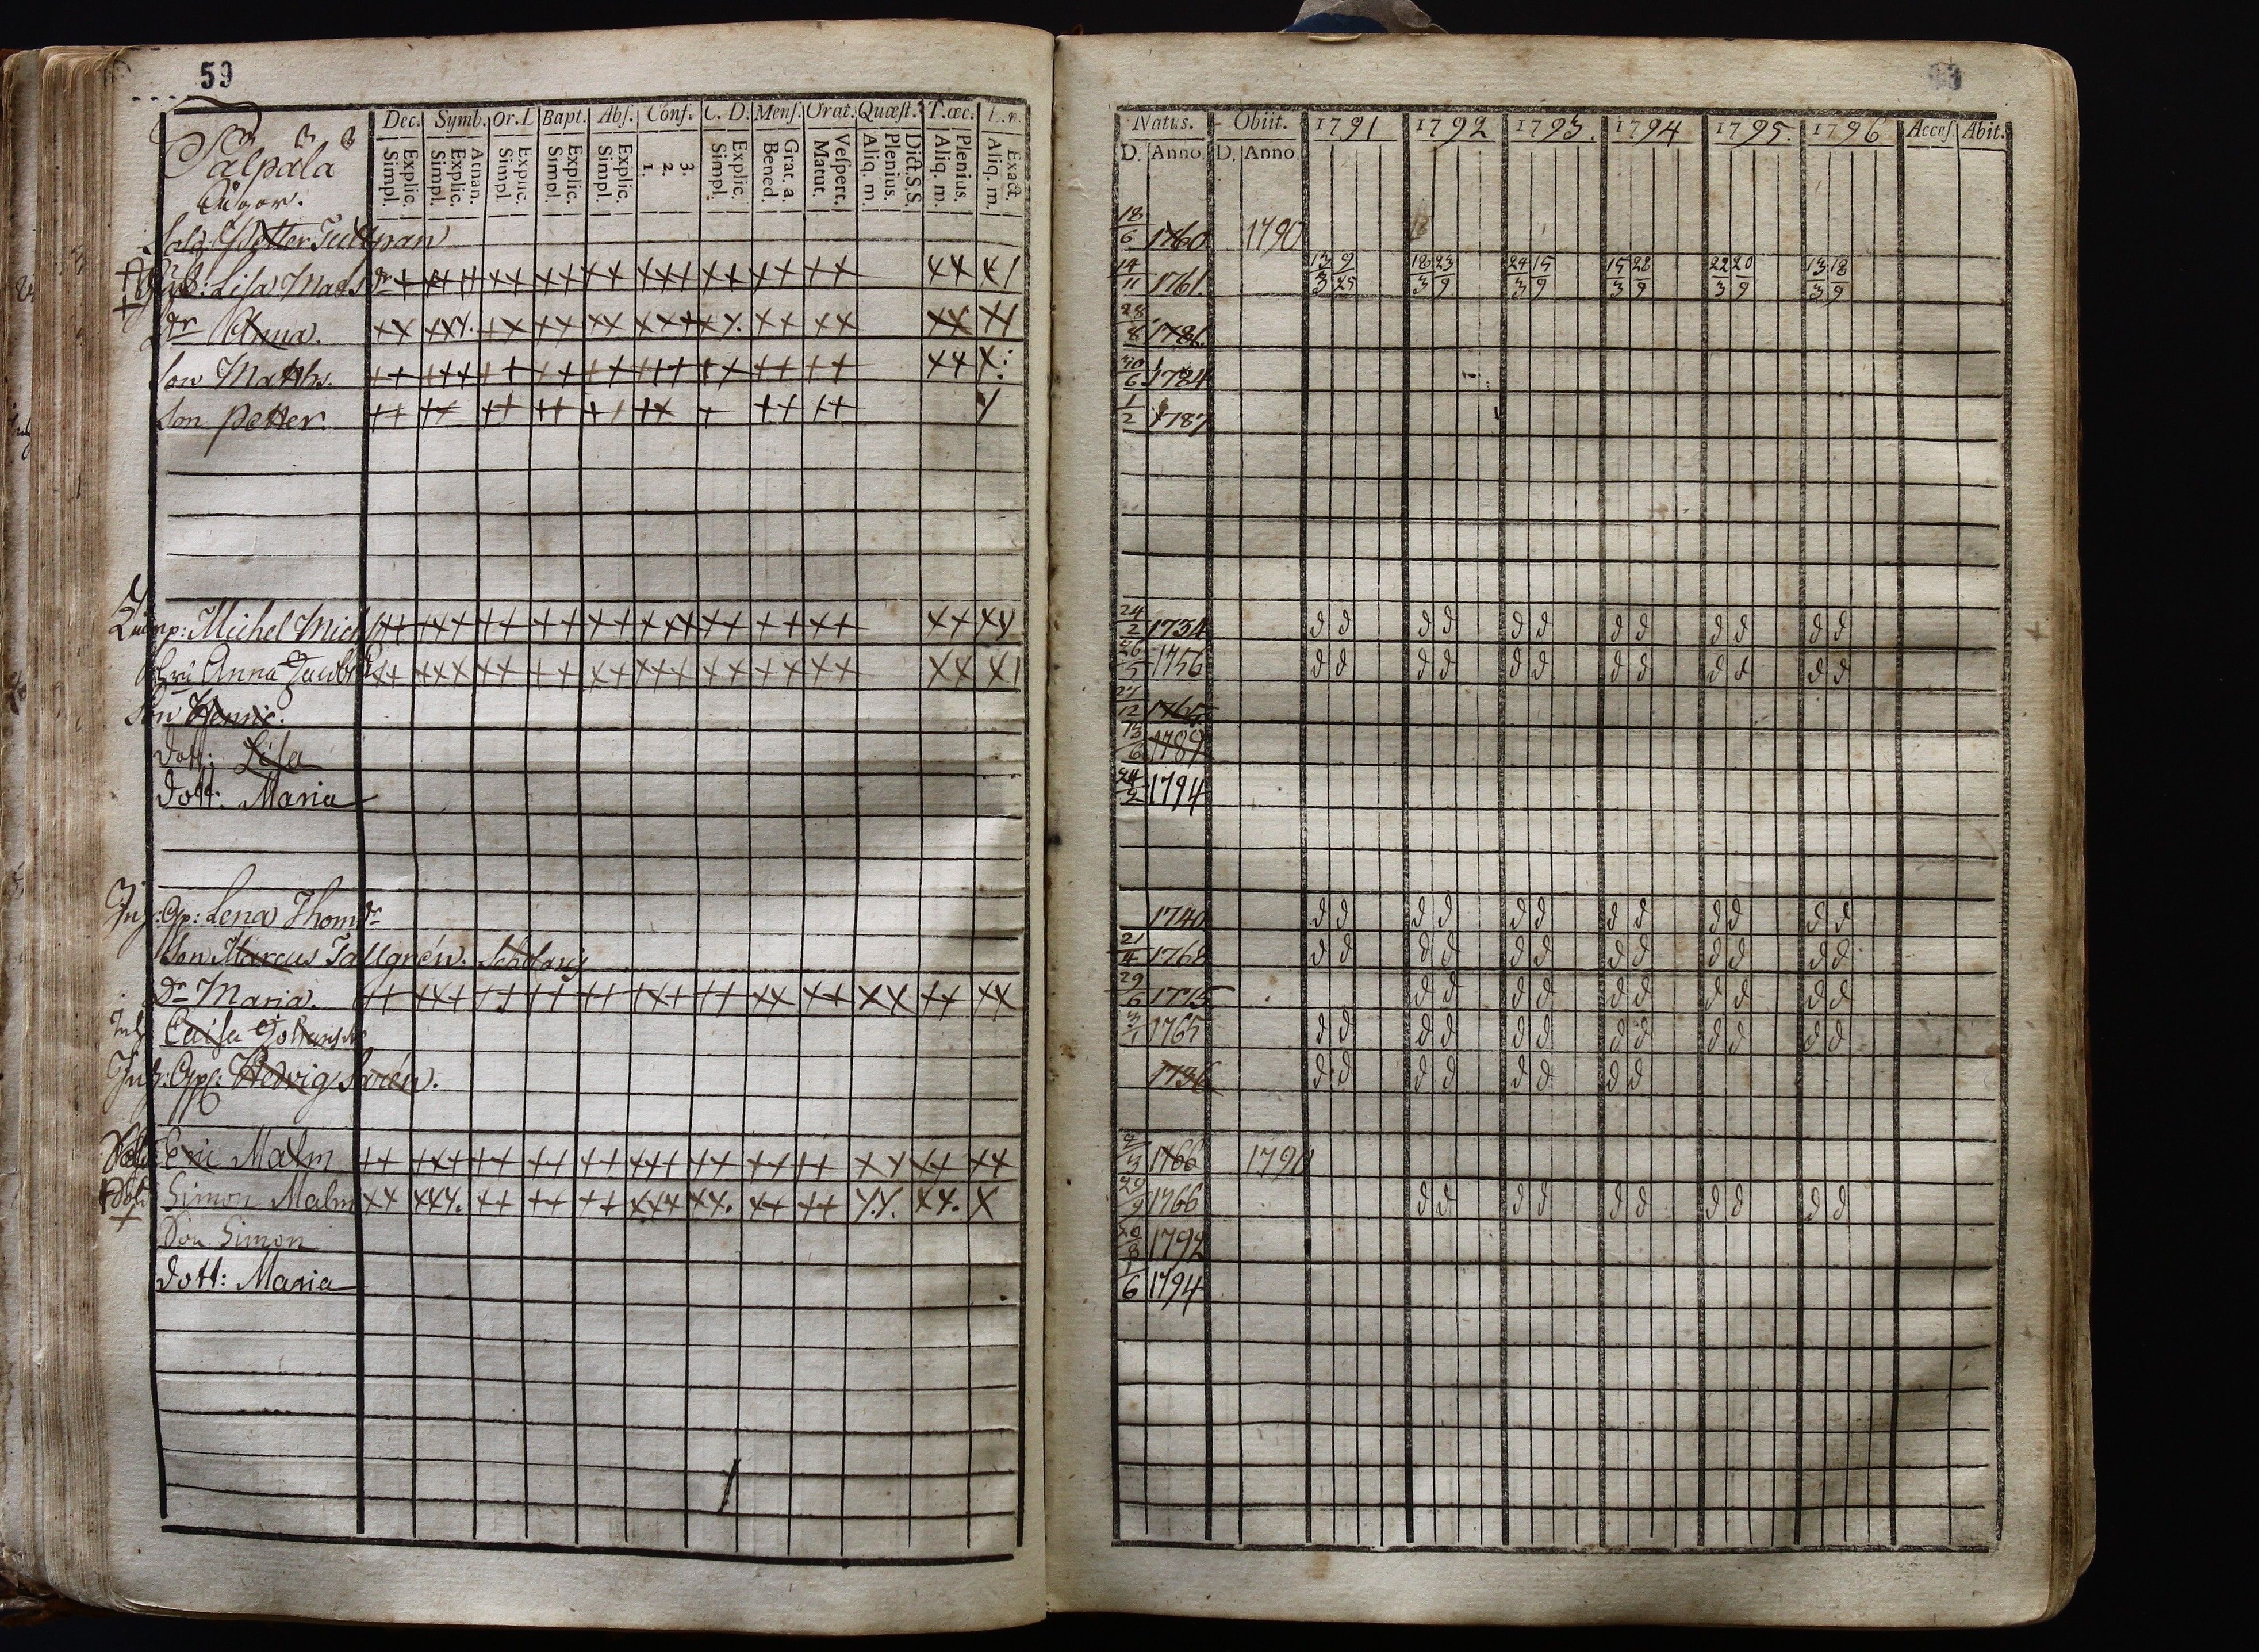 59
Dec. Symb. Or. D Bapt. Abs. Conf. C. D. Mens. Orat. Quæst. T. œc.
Explic. Simpl. Atnan. Explic. Simpl. Explic. Simpl. Explic. Simpl. Explic. Simpl. 3. 2. 1. Explic. Simpl. Grat. a. Bened. Vespert. Matut. Dict. S.S. Plenius. Aliq. m. Plenius. Aliq. m. Exact. Aliq. m.
Salpala
Natus. Obiit. 1791 1792 1793. 1794 1795. 1796 Acces. Abit.
D. Anno D. Anno
Petter 18/6 1760 1790
Lisa Mats Dr ++ +++ ++ ++ ++ +++ ++ ++ ++ ++ 14/11 1761. 13/3 9/25 18/3 23/9 24/3 15/9 15/3 28/9 22/3 20/9 13/3 18/9
Dr Anna. ++ +++ ++ ++ ++ +++ ++ ++ ++ ++ ++ 28/8 1781
Son Matths. ++ +++ ++ ++ ++ +++ ++ ++ ++ ++ 30/6 1784
Son Petter. ++ ++ ++ ++ ++ ++ + ++ ++ 1/2 1787
Michel Mich ++ +++ ++ ++ ++ +++ ++ ++ ++ ++ ++ 24/2 1734 d d d d d d d d d d d d
Anna Jacobs ++ +++ ++ ++ ++ +++ ++ ++ ++ ++ 26/5 1756 d d d d d d d d d d d d
Son Henric. 27/12 1765
Dott: Lisa 13/6 1789
Dott: Maria 1794
Lena Thom Dr 1740 d d d d d d d d d d d d
Son Marcus Tallgrén. 21/4 1768 d d d d d d d d d d d d
Dr Maria. ++ +++ ++ ++ ++ +++ ++ ++ ++ ++ ++ ++ 29/6 1775 d d d d d d d d d d
Caisa Johansdr 3/1 1765 d d d d d d d d d d d d
Hedvig 1736 d d d d d d d d
Eric Malm ++ +++ ++ ++ ++ +++ ++ ++ ++ ++ ++ ++ 1766 1790
Simon Malm ++ +++ ++ ++ ++ +++ ++ ++ ++ ++ ++ + 29/9 1766 d d d d d d d d d d
Son Simon 1792
Dott: Maria 1/6 1794